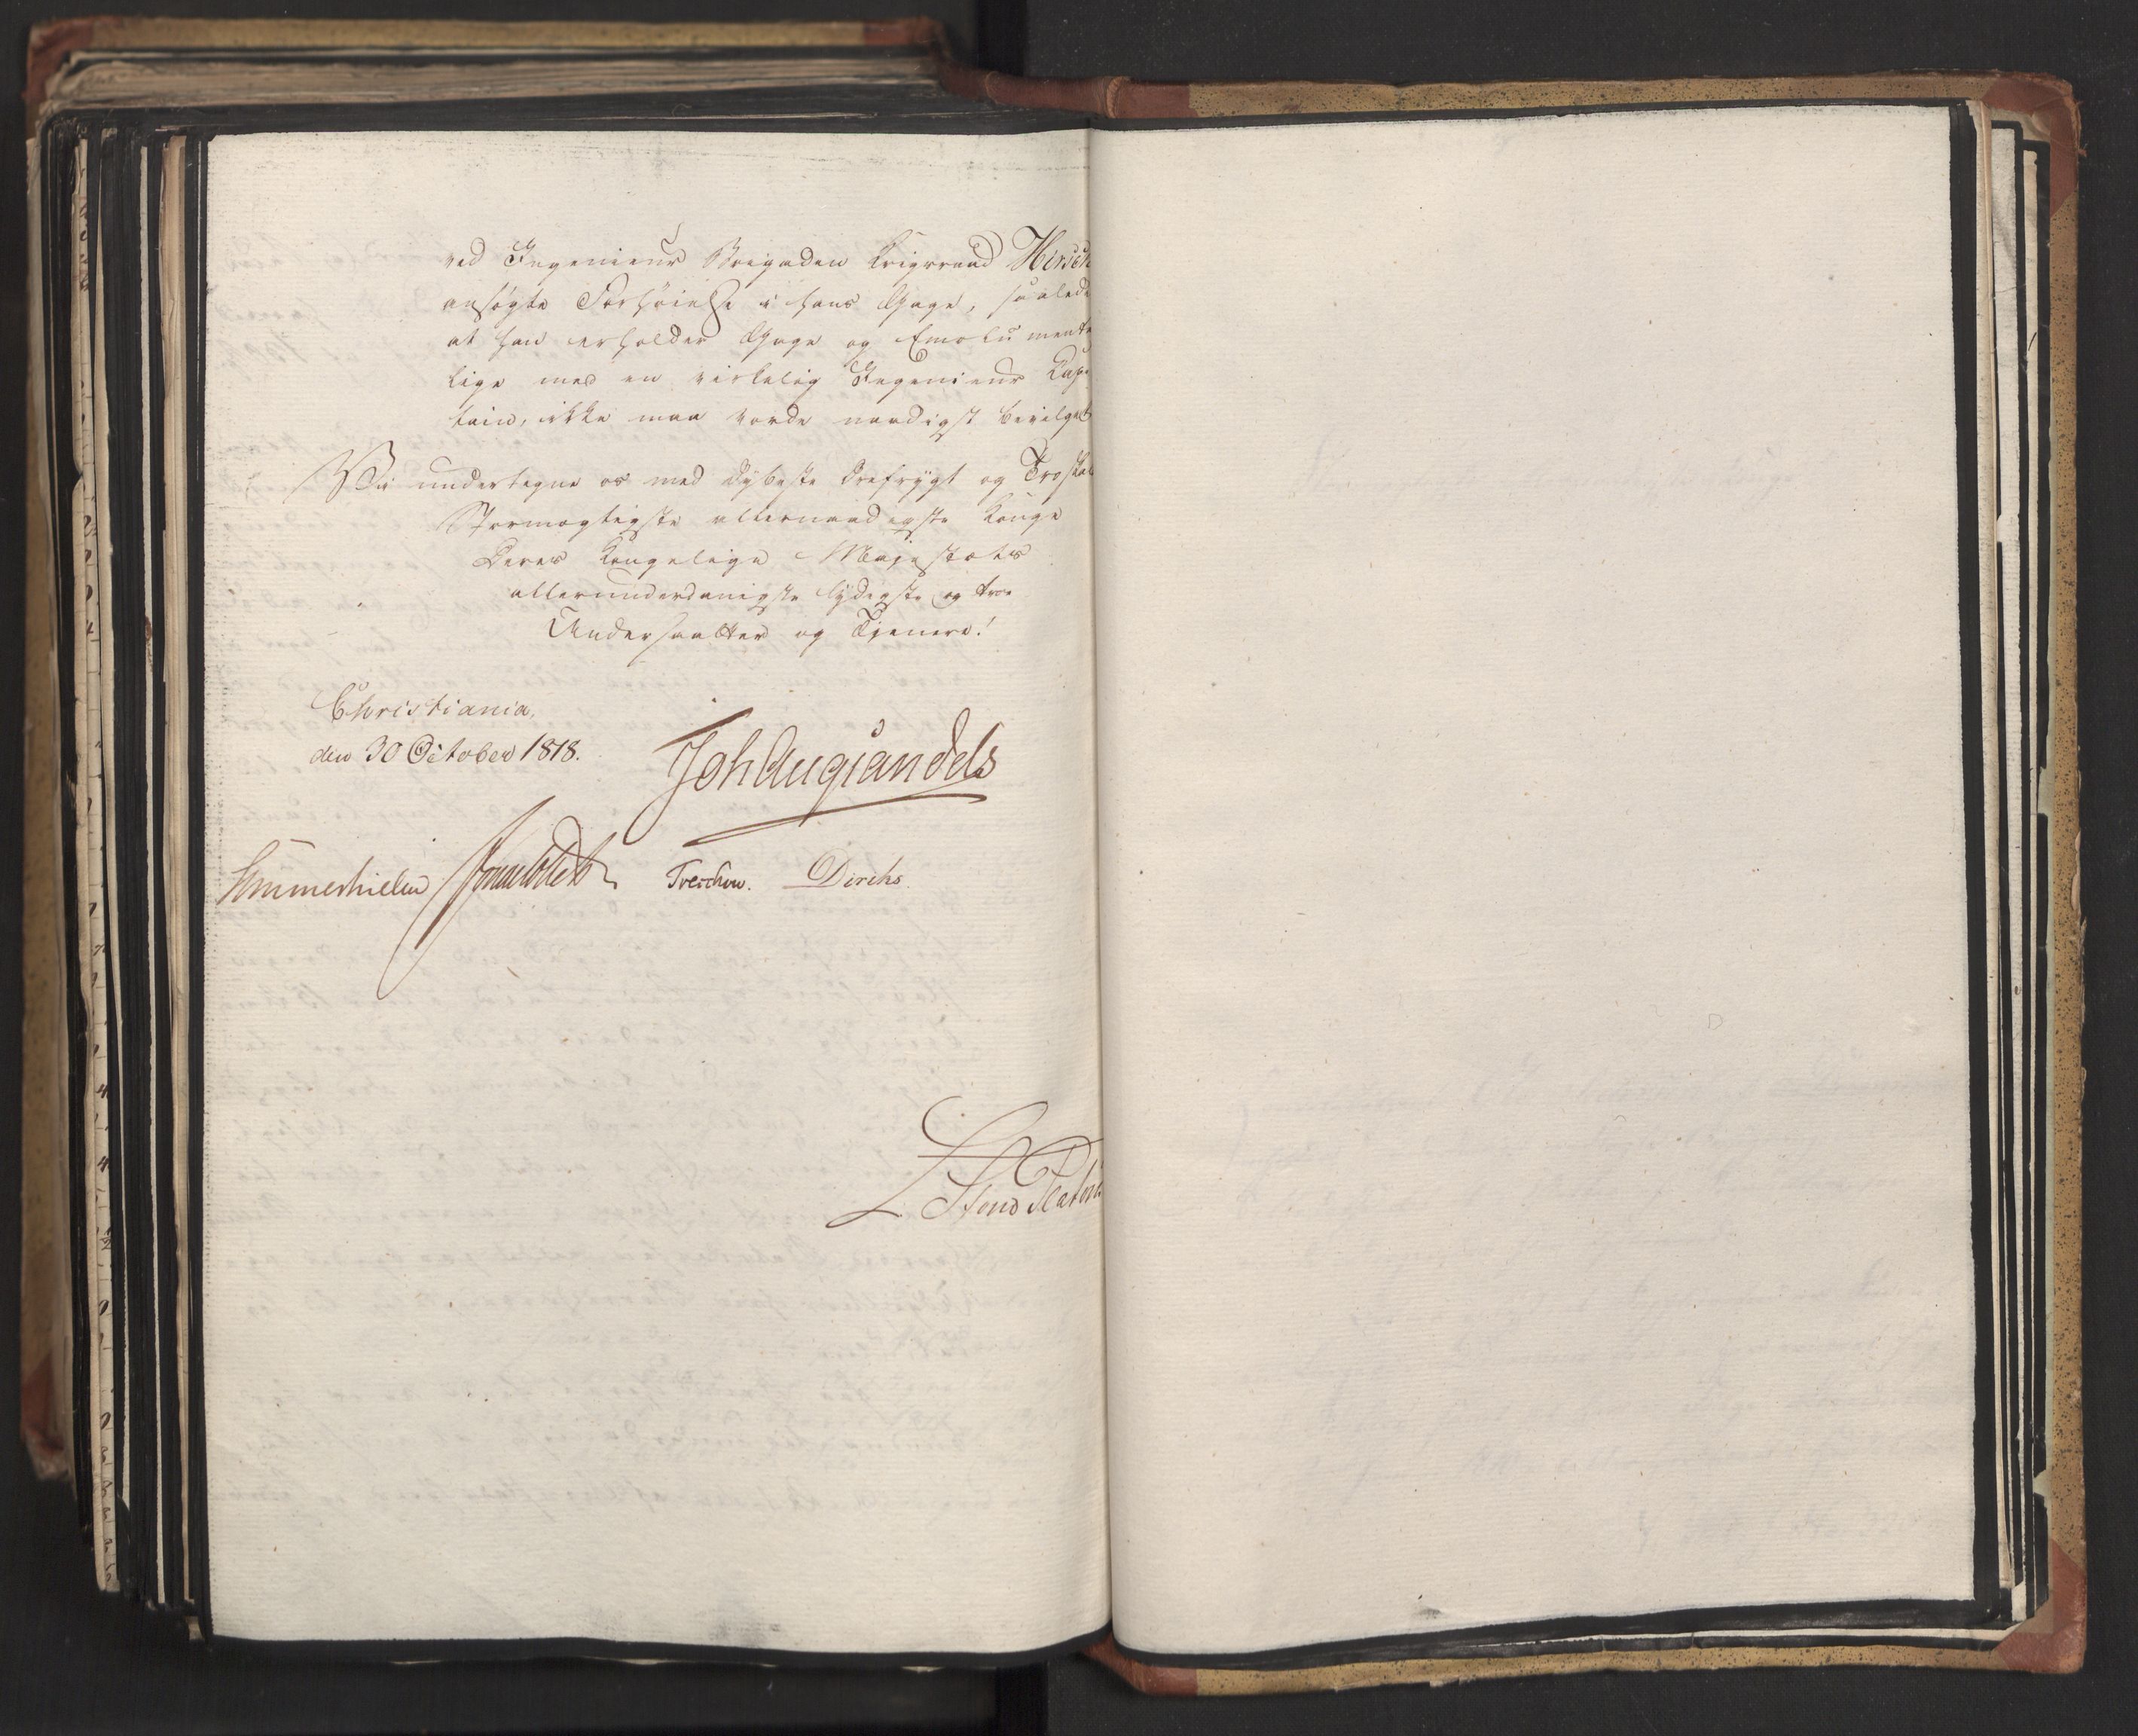 ved Ingenieur Brigaden Krigsraad Hirsch
ansøgte Forhøielse i hans Gage, saalede
at han erholder Gage og Emolumente
lige med en virkelig Ingenieur Cap
tain, ikke maa vorde naadigst bevilget
Vi undertegne os med dybeste Ærefrygt og Troskab
Stormægtigste allernaadigste Konge
Deres Kongelige Majestæts
allerunderdanigste lydigste og troe
Undersaatter og Tjenere!
Christiania,
den 30 October 1818.
Joh Aug Sandels
Sommerhielm Treschow. Diriks.
Sten Platen